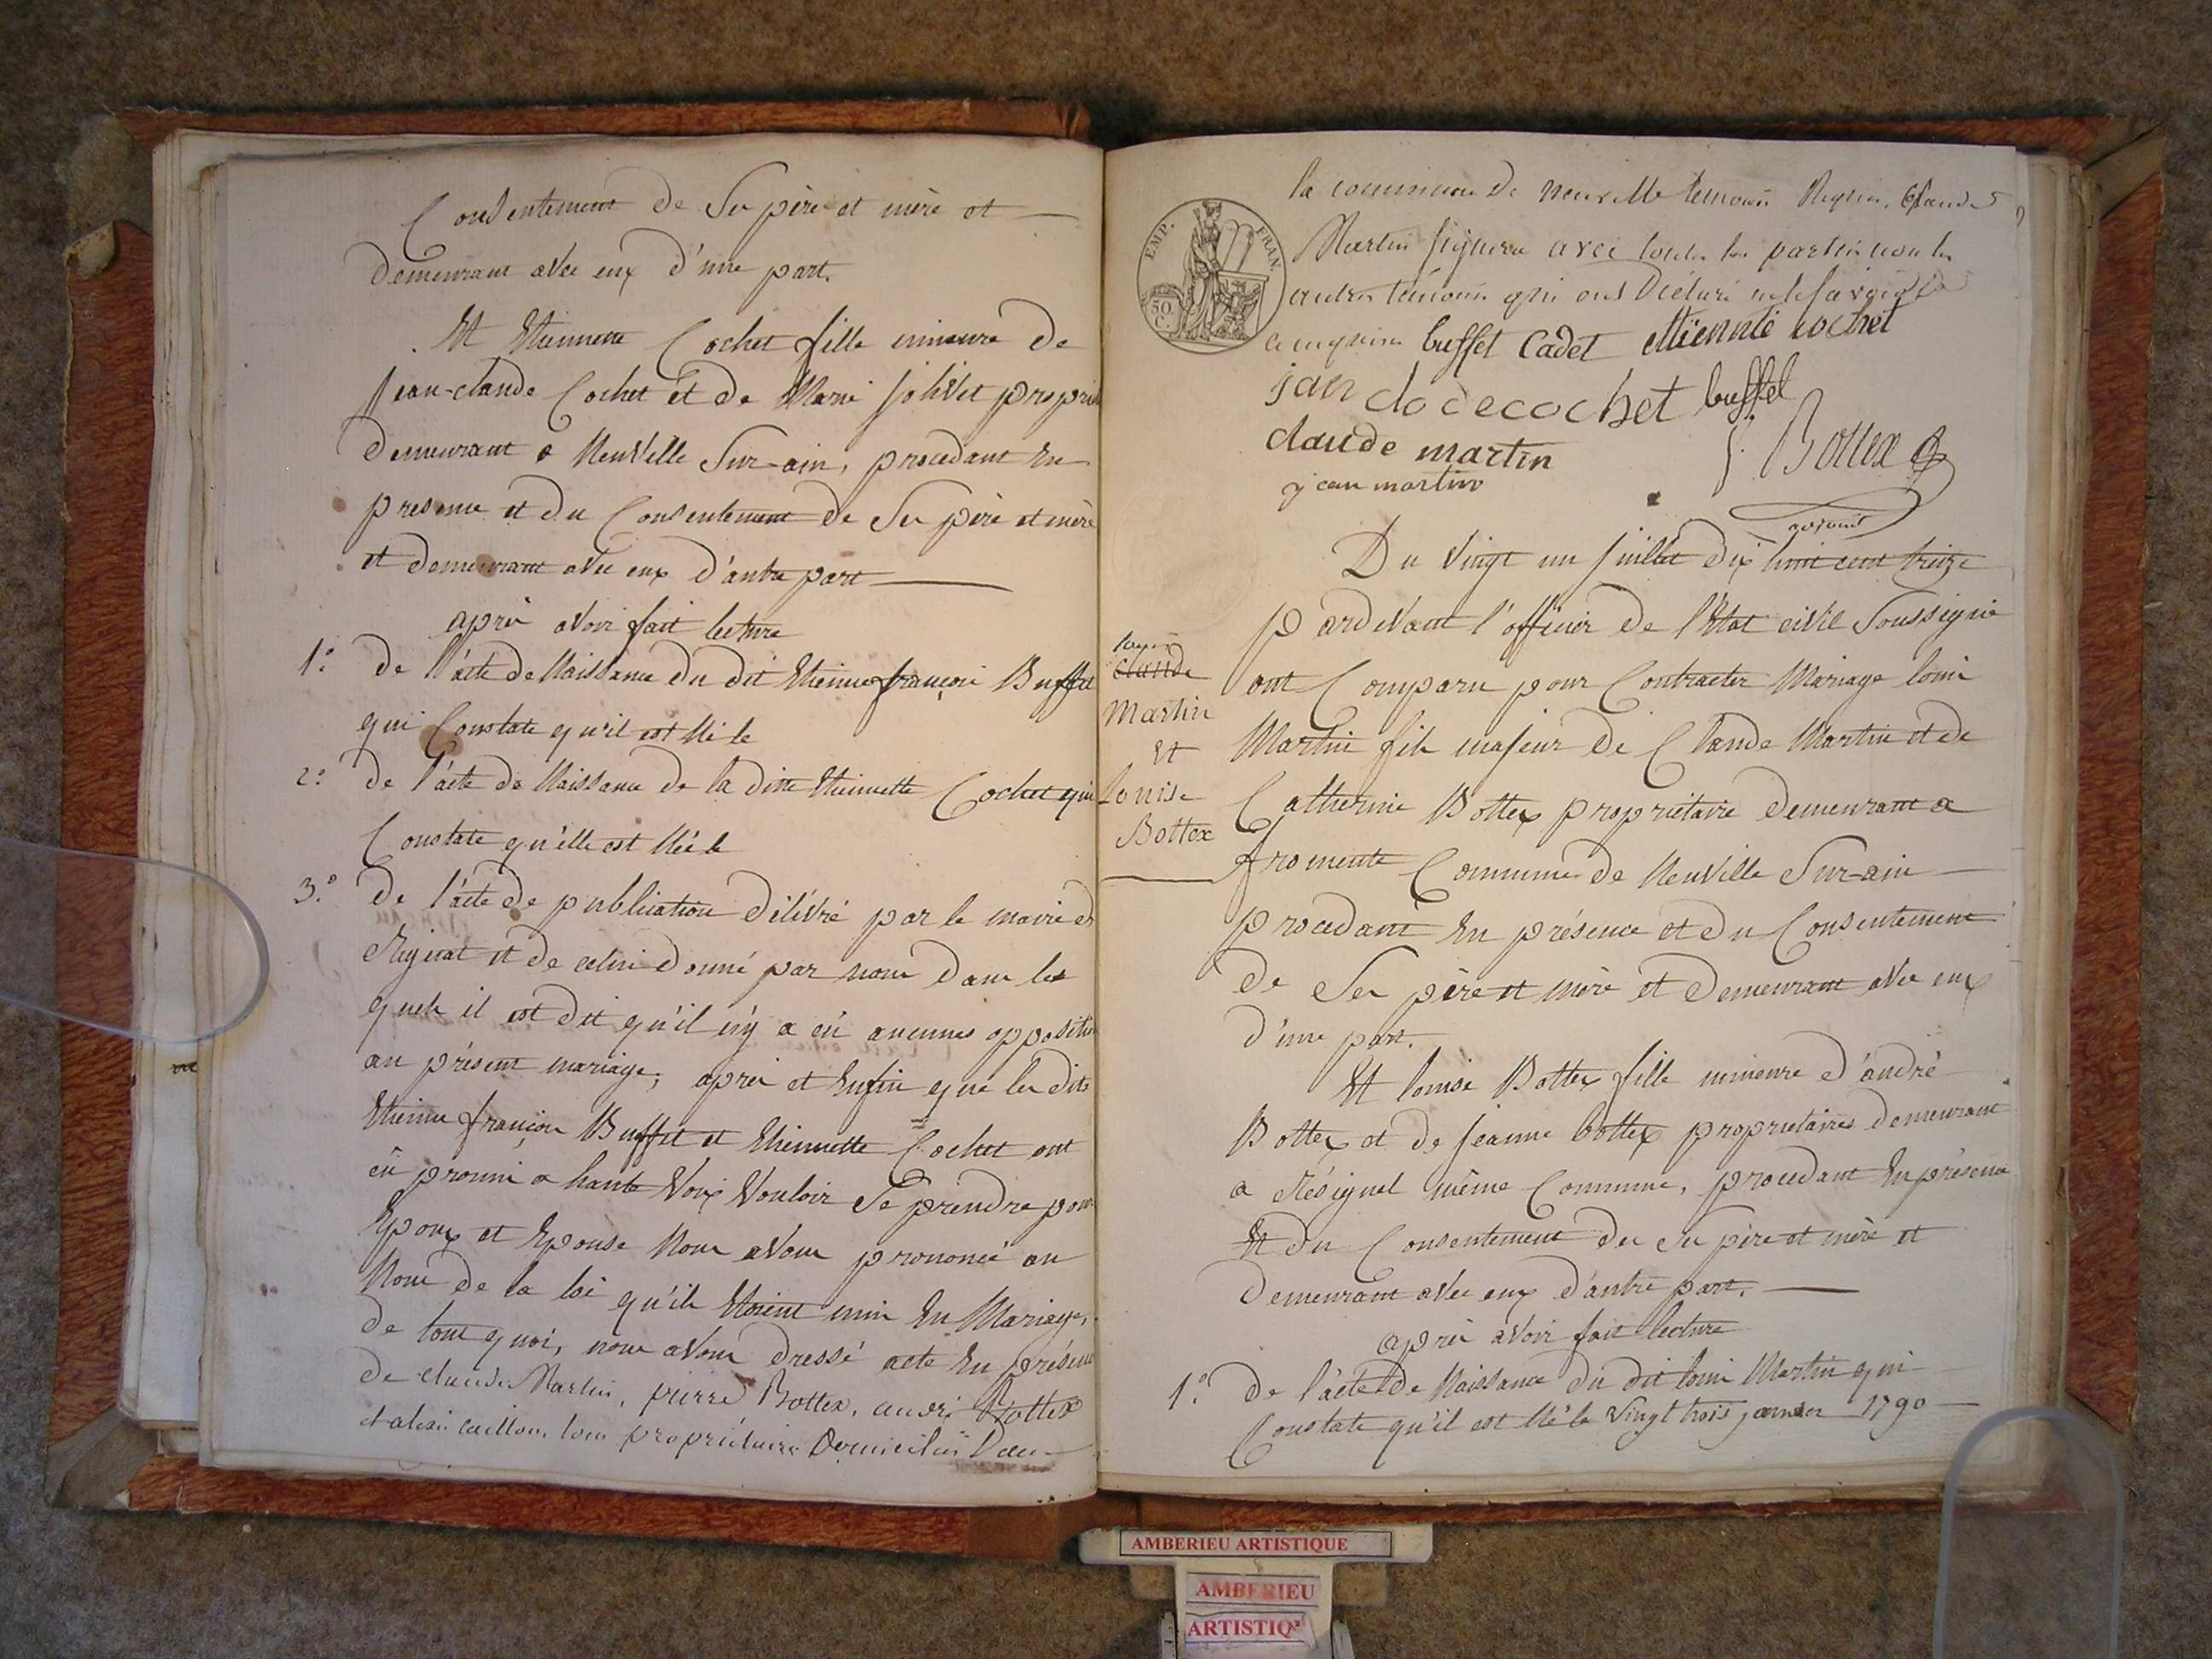 Consentement de Ses père et mère et
demeurant avec eux d'une part.
Et Etiennette Cochet fille mineure de
Jean-claude Cochet et de Marie Jolivet propri
demeurant a Neuville Sur-ain, procedant En
presence et du Consentement de Ses père et mère
et demeurant avec eux d'autre part
après avoir fait lecture
1.° de l'acte de Naissance du dit Etienne françois Buffet
qui Constate qu'il est Né le
2.° de l'acte de Naissance de la ditte Etiennette Cochet qui
Constate qu'elle est Née le
3.° de l'acte de publication délivré par le maire de
et de celui donné par nous dans les
quels il est dit qu'il n'y a eü aucunes oppositio
au présent mariage; après et Enfin que les dits
Etienne françois Buffet et Etiennette Cochet ont
eü promis a haute Voix Vouloir Se prendre pour
Epoux et Epouse Nous avons prononcé au
Nom de la loi qu'ils Etoient unis En Mariage,
de tout quoi, nous avons dressé acte En présence
de claude Martin, pierre Bottex, andré Bottex
et tous propriétaires Domiciliés Dans
la commune de neuville temoins Requis, Claude
Martin signera avec toutes les parties non les
autres témoins qui ont Déclaré ne le savoir
ce requis buffet Cadet ettiennte cochet
jan clo de cochet buffet
claude martin Bottex
jean martin
EMP. FRAN.
50 C.
Du Vingt un Juillet dix huit cent treize
pardevant l'officier de l'Etat civil Soussigné
ont Comparu pour Contracter Mariage louis
Martin fils majeur de Claude Martin et de
Catherine Bottex propriétaire demeurant a
fromente Commune de Neuville Sur-ain
procedant En présence et du Consentement
de Ses père et mère et demeurant avec eux
d'une part.
claude
Martin
Et
Louise
Bottex
Et louise Bottex fille mineure d'andré
Bottex et de jeanne bottex propriétaires demeurant
a Résignel même Commune, procedant En présence
Et du Consentement des Ses père et mère et
demeurant avec eux d'autre part.
après avoir fait lecture
1.° de l'acte de Naissance du dit louis Martin qui
Constate qu'il est Né le Vingt trois janvier 1790
AMBERIEU ARTISTIQUE
AMBERIEU
ARTISTIQ